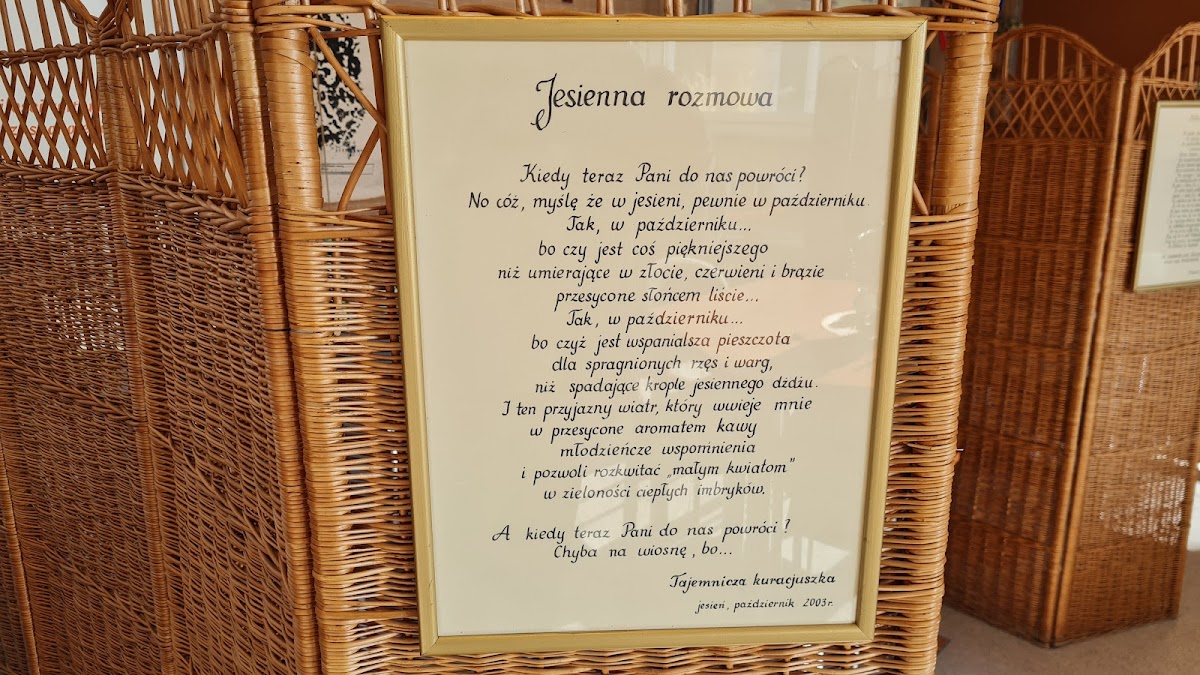 Jesienna rozmowa
Kiedy teraz Pani do nas powróci?
No cóż, myślę że w jesieni, pewnie w październiku.
Tak, w październiku...
bo czy jest coś piękniejszego
niż umierające w złocie, czerwieni i brązie
przesycone słońcem liście...
Tak, w październiku...
bo czyż jest wspanialsza pieszczota
dla spragnionych rzęs i warg,
niż spadające krople jesiennego dżdżu.
I ten przyjazny wiatr, który wwieje mnie
w przesycone aromatem kawy
młodzieńcze wspomnienia
i pozwoli rozkwitać „małym kwiatom"
w zieloności ciepłych imbryków.
A kiedy teraz Pani do nas powróci?
Chyba na wiosnę, bo...
Tajemnicza kuracjuszka
jesień, październik 2003 r.